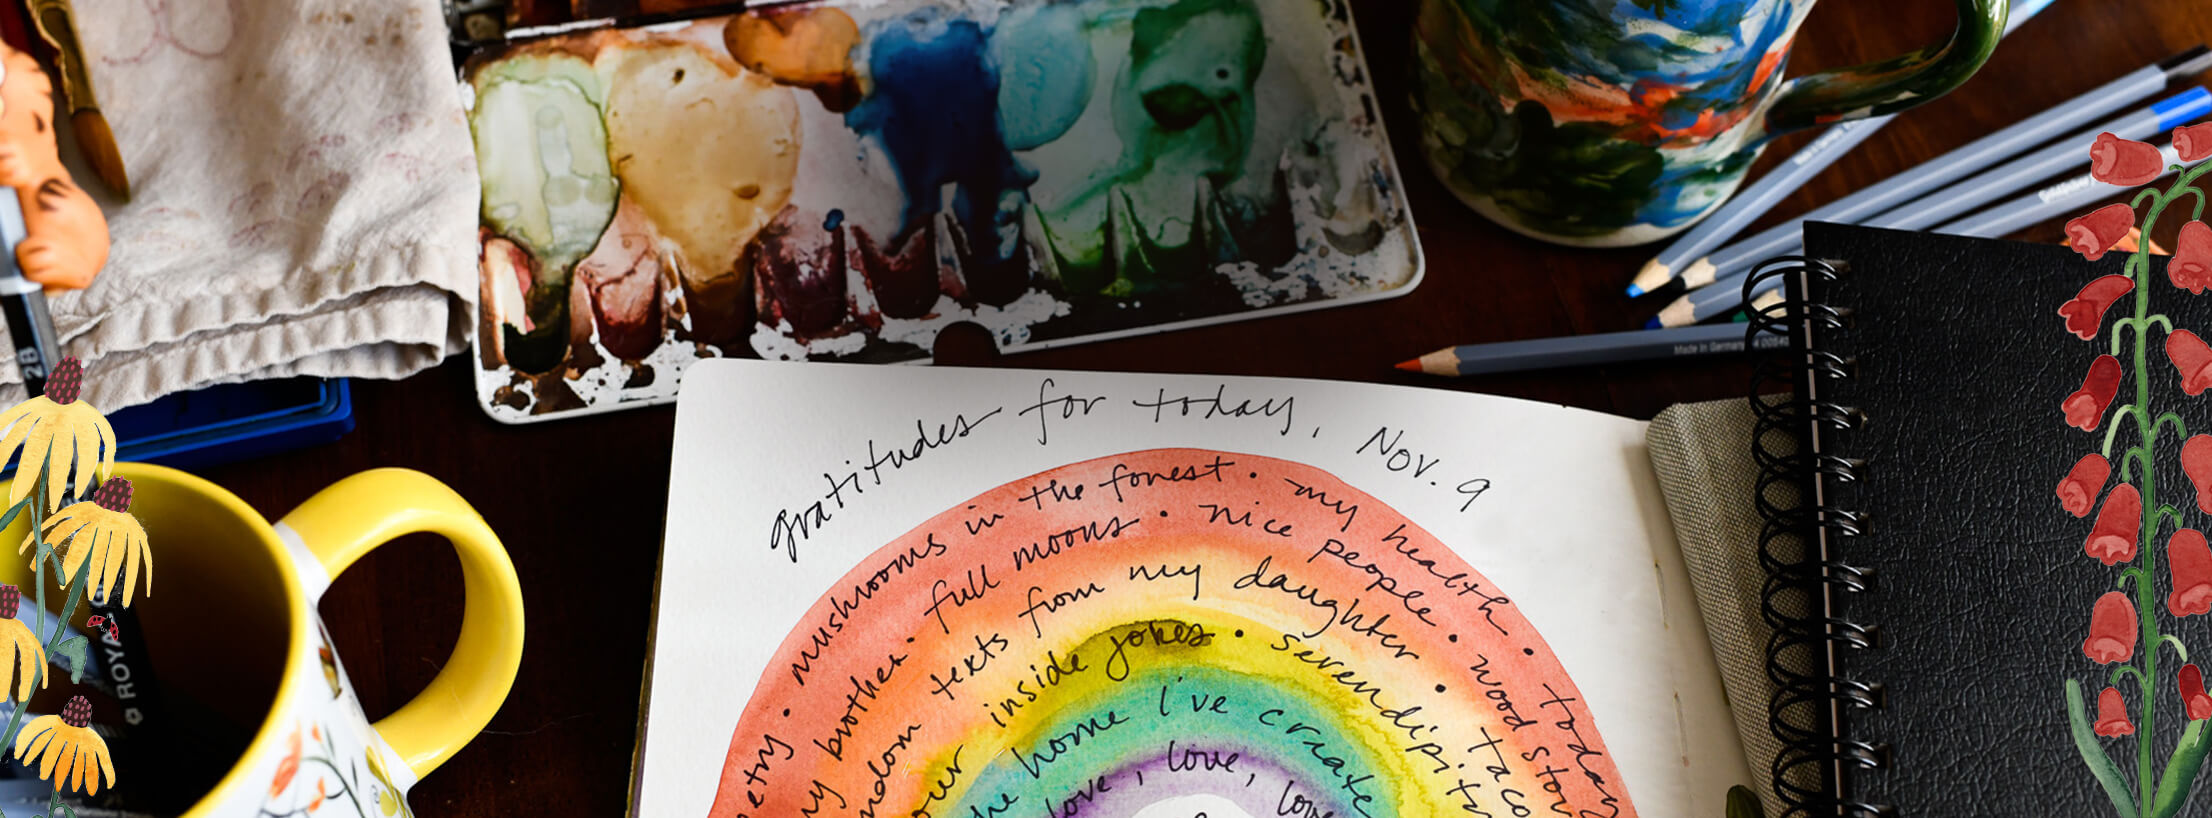 gratitudes for today, Nov. 9
mushrooms in the forest • my health • today
my brother • full moons • nice people • wood
texts from my daughter • taco
our inside jokes • serendipity
the home i've create
love, love, love
2B
ROYA
Made in Germany